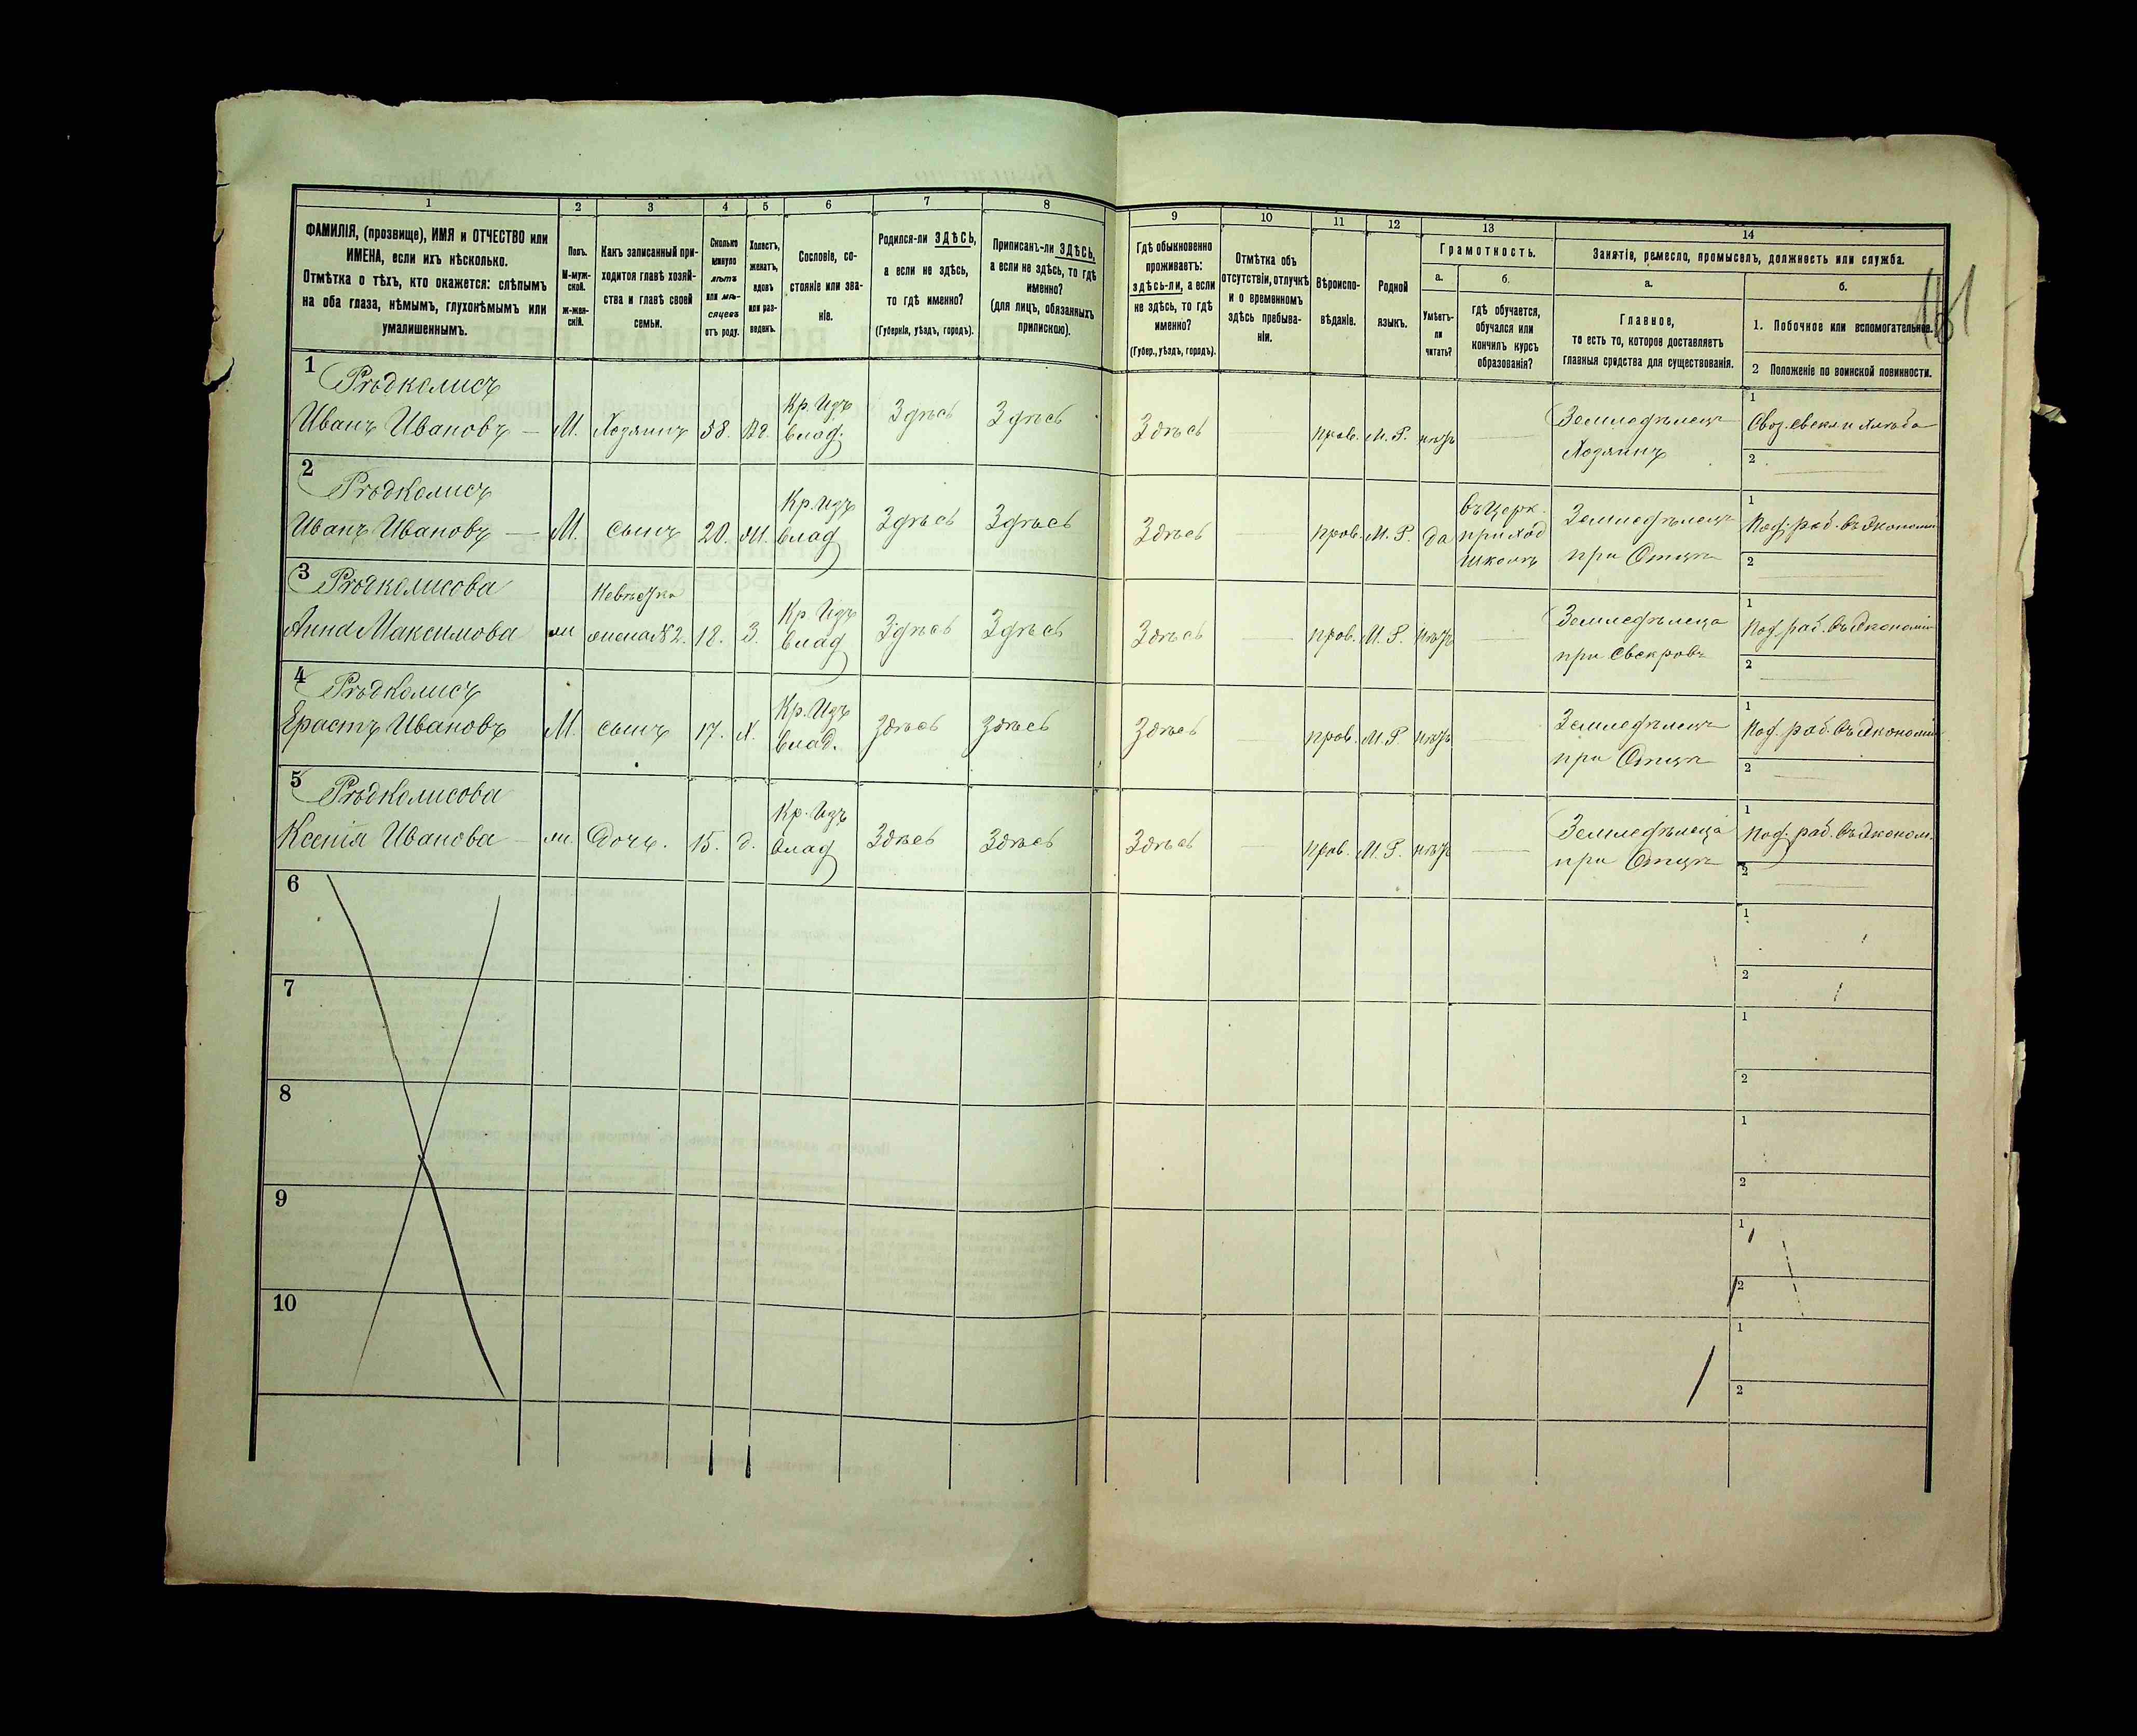 1
2
3
4
5
6
7
8
ФАМИЛІЯ, (прозвище), ИМЯ и ОТЧЕСТВО или
ИМЕНА, если ихъ нѣсколько.
Отмѣтка о тѣхъ, кто окажется: слѣпымъ
на оба глаза, нѣмымъ, глухонѣмымъ или
умалишеннымъ.
Полъ.
М-муж-
ской.
Ж-жен-
скій.
Какъ записанный при-
ходится главѣ хозяй-
ства и главѣ своей
семьи.
Сколько
минуло
лѣтъ
или мѣ-
сяцевъ
отъ роду.
Холостъ,
женатъ,
вдовъ
или раз-
веденъ.
Сословіе, со-
стояніе или зва-
ніе.
Родился-ли ЗДѢСЬ,
а если не здѣсь,
то гдѣ именно?
(Губернія, уѣздъ, городъ).
Приписанъ-ли ЗДѢСЬ,
а если не здѣсь, то гдѣ
именно?
(для лицъ, обязанныхъ
припискою).
9
10
11
12
13
14
Гдѣ обыкновенно
проживаетъ:
здѣсь-ли, а если
не здѣсь, то гдѣ
именно?
(Губер., уѣздъ, городъ).
Отмѣтка объ
отсутствіи, отлучкѣ
и о временномъ
здѣсь пребыва-
ніи.
Вѣроиспо-
вѣданіе.
Родной
языкъ.
Грамотность.
а.
Умѣетъ-
ли
читать?
б.
гдѣ обучается,
обучался или
кончилъ курсъ
образованія?
Занятіе, ремесло, промыселъ, должность или служба.
а.
Главное,
то есть то, которое доставляетъ
главныя средства для существованія.
б.
1. Побочное или вспомогательное.
2 Положеніе по воинской повинности.
1
Рѣдколисъ
Иванъ Ивановъ — М. Хозяинъ 58. Вд. Кр. Изъ
влад. Здѣсь Здѣсь
Здѣсь — прав. М. Р. нѣтъ — Земледѣлецъ
Хозяинъ
1
2
2
Рѣдколисъ
Иванъ Ивановъ — М. сынъ 20. М. Кр. Изъ
влад Здѣсь Здѣсь
Здѣсь — прав. М. Р. да въ Церк.
приход
школѣ
Земледѣлецъ
при Отцѣ
1
Под. раб. въ Экономіи
2
3
Рѣдколисова
Анна Максимова ж Невѣстка
жена № 2. 18. З. Кр. Изъ
влад Здѣсь Здѣсь
Здѣсь — прав. М. Р. нѣтъ —
Земледѣлица
при Свекровѣ
1
Под. раб. въ Экономіи
2
4
Рѣдколисъ
Ерастъ Ивановъ М. сынъ 17. Х. Кр. Изъ
влад. Здѣсь Здѣсь
Здѣсь — прав. М. Р. нѣтъ
Земледѣлецъ
при Отцѣ
1
Под. раб. въ Экономіи
2
5
Рѣдколисова
Ксенія Иванова — ж. Дочь. 15. д. Кр. Изъ
влад Здѣсь Здѣсь
Здѣсь — прав. М. Р. нѣтъ —
Земледѣлица
при Отцѣ
1
Под. раб. въ Эконом.
2
6
1
2
7
1
2
8
1
2
9
1
2
10
1
2